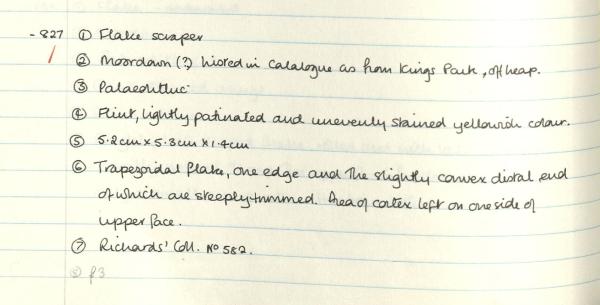 -827 ① Flake scraper
② Moordown (?) in Catalogue as from Kings Park, off heap.
③ Palaeolithic
④ Flint, lightly patinated and unevenly stained yellowish colour.
⑤ 5.2cm x 5.3cm x 1.4cm
⑥ Trapezoidal flake, one edge and the slightly convex distal end
of which are steeply trimmed. Area of cortex left on one side of
upper face.
⑦ Richards' Coll. No 582.
⑧ f3